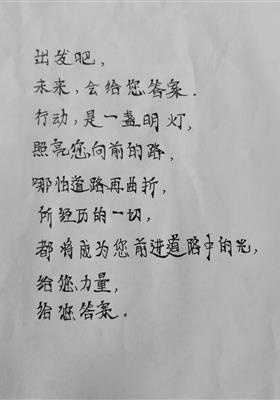 出发吧,
未来,会给您答案.
行动,是一盏明灯,
照亮您向前的路,
哪怕道路再曲折,
所经历的一切,
都将成为您前进道路中的光,
给您力量,
给您答案。